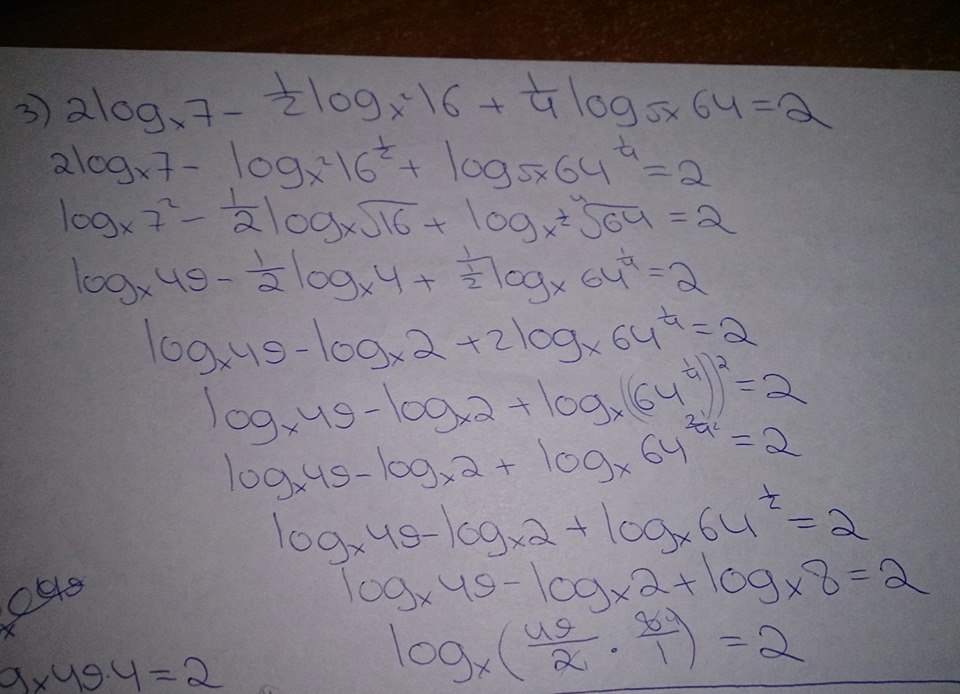 3) 2log_x 7 - 1/2 log_x² 16 + 1/4 log_√x 64 = 2
2log_x 7 - log_x² 16^1/2 + log_√x 64^1/4 = 2
log_x 7² - 1/2 log_x √16 + log_x^1/2 ⁴√64 = 2
log_x 49 - 1/2 log_x 4 + 1/(1/2) log_x 64^1/4 = 2
log_x 49 - log_x 2 + 2log_x 64^1/4 = 2
log_x 49 - log_x 2 + log_x ((64^1/4))² = 2
log_x 49 - log_x 2 + log_x 64^2/4 = 2
log_x 49 - log_x 2 + log_x 64^1/2 = 2
log_x 49 - log_x 2 + log_x 8 = 2
log_x (49/2 · 84/1) = 2
g_x 49·4 = 2